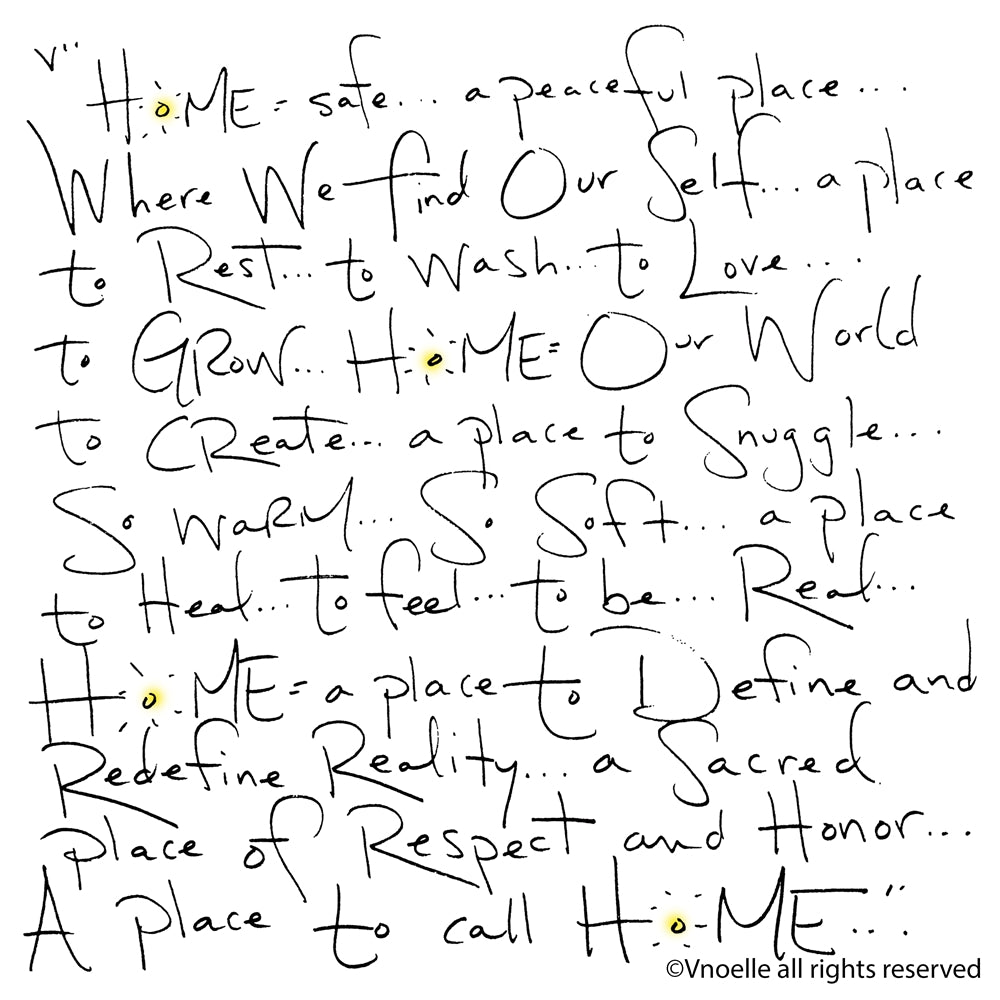 V" HoME = safe... a peaceful place...
Where We find Our Self... a place
to Rest... to Wash... to Love...
to GRoW... HoME = Our World
to CReate... a place to Snuggle...
So WaRM... So Soft... a place
to Heal... to feel... to be... Real...
HoME = a place to Define and
Redefine Reality... a Sacred
place of Respect and Honor...
A place to call HoME..."
©Vnoelle all rights reserved